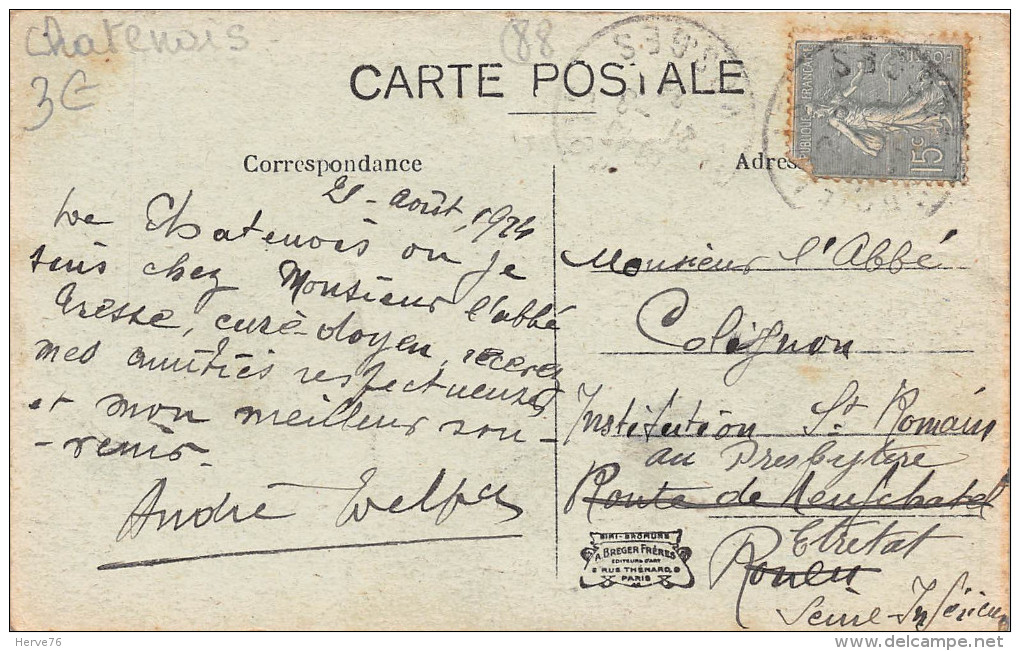 Chatenois
3€
(88
CARTE POSTALE
Correspondance
21 - Août, 1924
De Chatenois ou je
suis chez Monsieur l'abbé
curé-doyen, recevez
mes amitiés respectueuses
et mon meilleur sou-
-venir.
André
RÉPUBLIQUE FRANÇAISE
POSTES
15c
VOSGES
Monsieur l'Abbé
Colignon
Institution St Romain
au Presbytère
Route de Neufchatel
Etretat
Rouen
Seine-Inférieure
SIMI-BROMURE
A. BREGER FRÈRES
EDITEURS D'ART
9 RUE THÉNARD, 9
PARIS
Herve76
delcampe.net